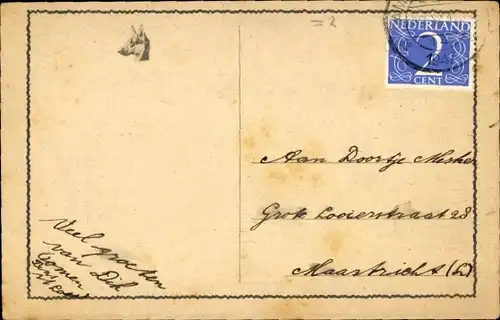 =2
NEDERLAND
2
CENT
Aan Doortje
Grote Looierstraat 28
Maastricht (L)
Veel groeten
van Dik